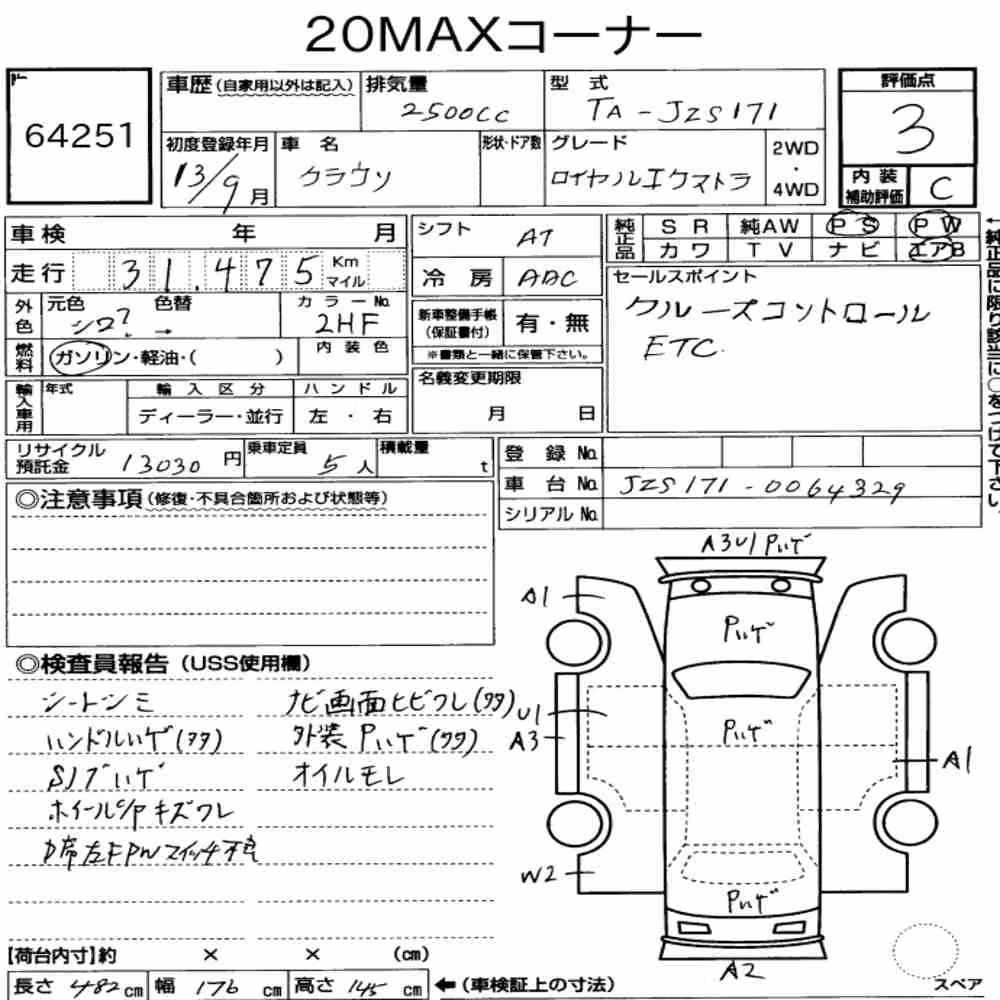 20MAXコーナー
64251
車歴(自家用以外は記入) 排気量 2500cc 型式 TA-JZS171
評価点 3
初度登録年月 13/9月 車名 クラウン 形状・ドア数 グレード ロイヤルエクストラ 2WD・4WD
内装補助評価 C
車検 年 月
走行 31,475 Km マイル
外色 元色 シロ? 色替 → カラーNo. 2HF
燃料 ガソリン・軽油・( ) 内装色
輸入車用 年式 輸入区分 ディーラー・並行 ハンドル 左・右
シフト AT
冷房 AAC
新車整備手帳(保証書付) 有・無
※書類と一緒に保管下さい。
名義変更期限 月 日
純正品 SR 純AW PS PW
カワ TV ナビ エアB
←純正品に限り該当に○をつけて下さい。
セールスポイント
クルーズコントロール
ETC
リサイクル預託金 13030円 乗車定員 5人 積載量 t
登録No.
車台No. JZS171-0064329
シリアルNo.
◎注意事項(修復・不具合箇所および状態等)
◎検査員報告(USS使用欄)
シートシミ ナビ画面ヒビワレ(タタ)
ハンドルハゲ(タタ) 外装Pハゲ(タタ)
Sノブハゲ オイルモレ
ホイールC/Pキズワレ
D席左FPWスイッチ不良
A3U1Pハゲ
A1
Pハゲ
U1
A3
Pハゲ
A1
W2
Pハゲ
A2
スペア
【荷台内寸】約 × × (cm)
長さ 482cm 幅 176cm 高さ 145cm ←(車検証上の寸法)